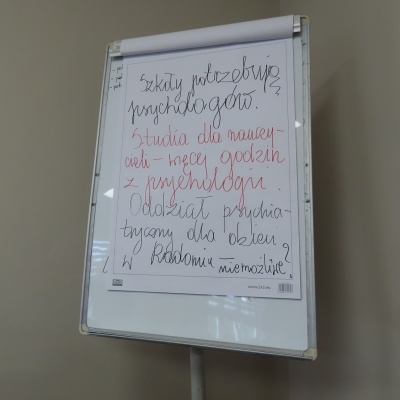 Szkoły potrzebują
psychologów.
Studia dla nauczy-
cieli - więcej godzin
z psychologii.
Oddział psychia-
tryczny dla dzieci
w Radomiu niemożliwe?